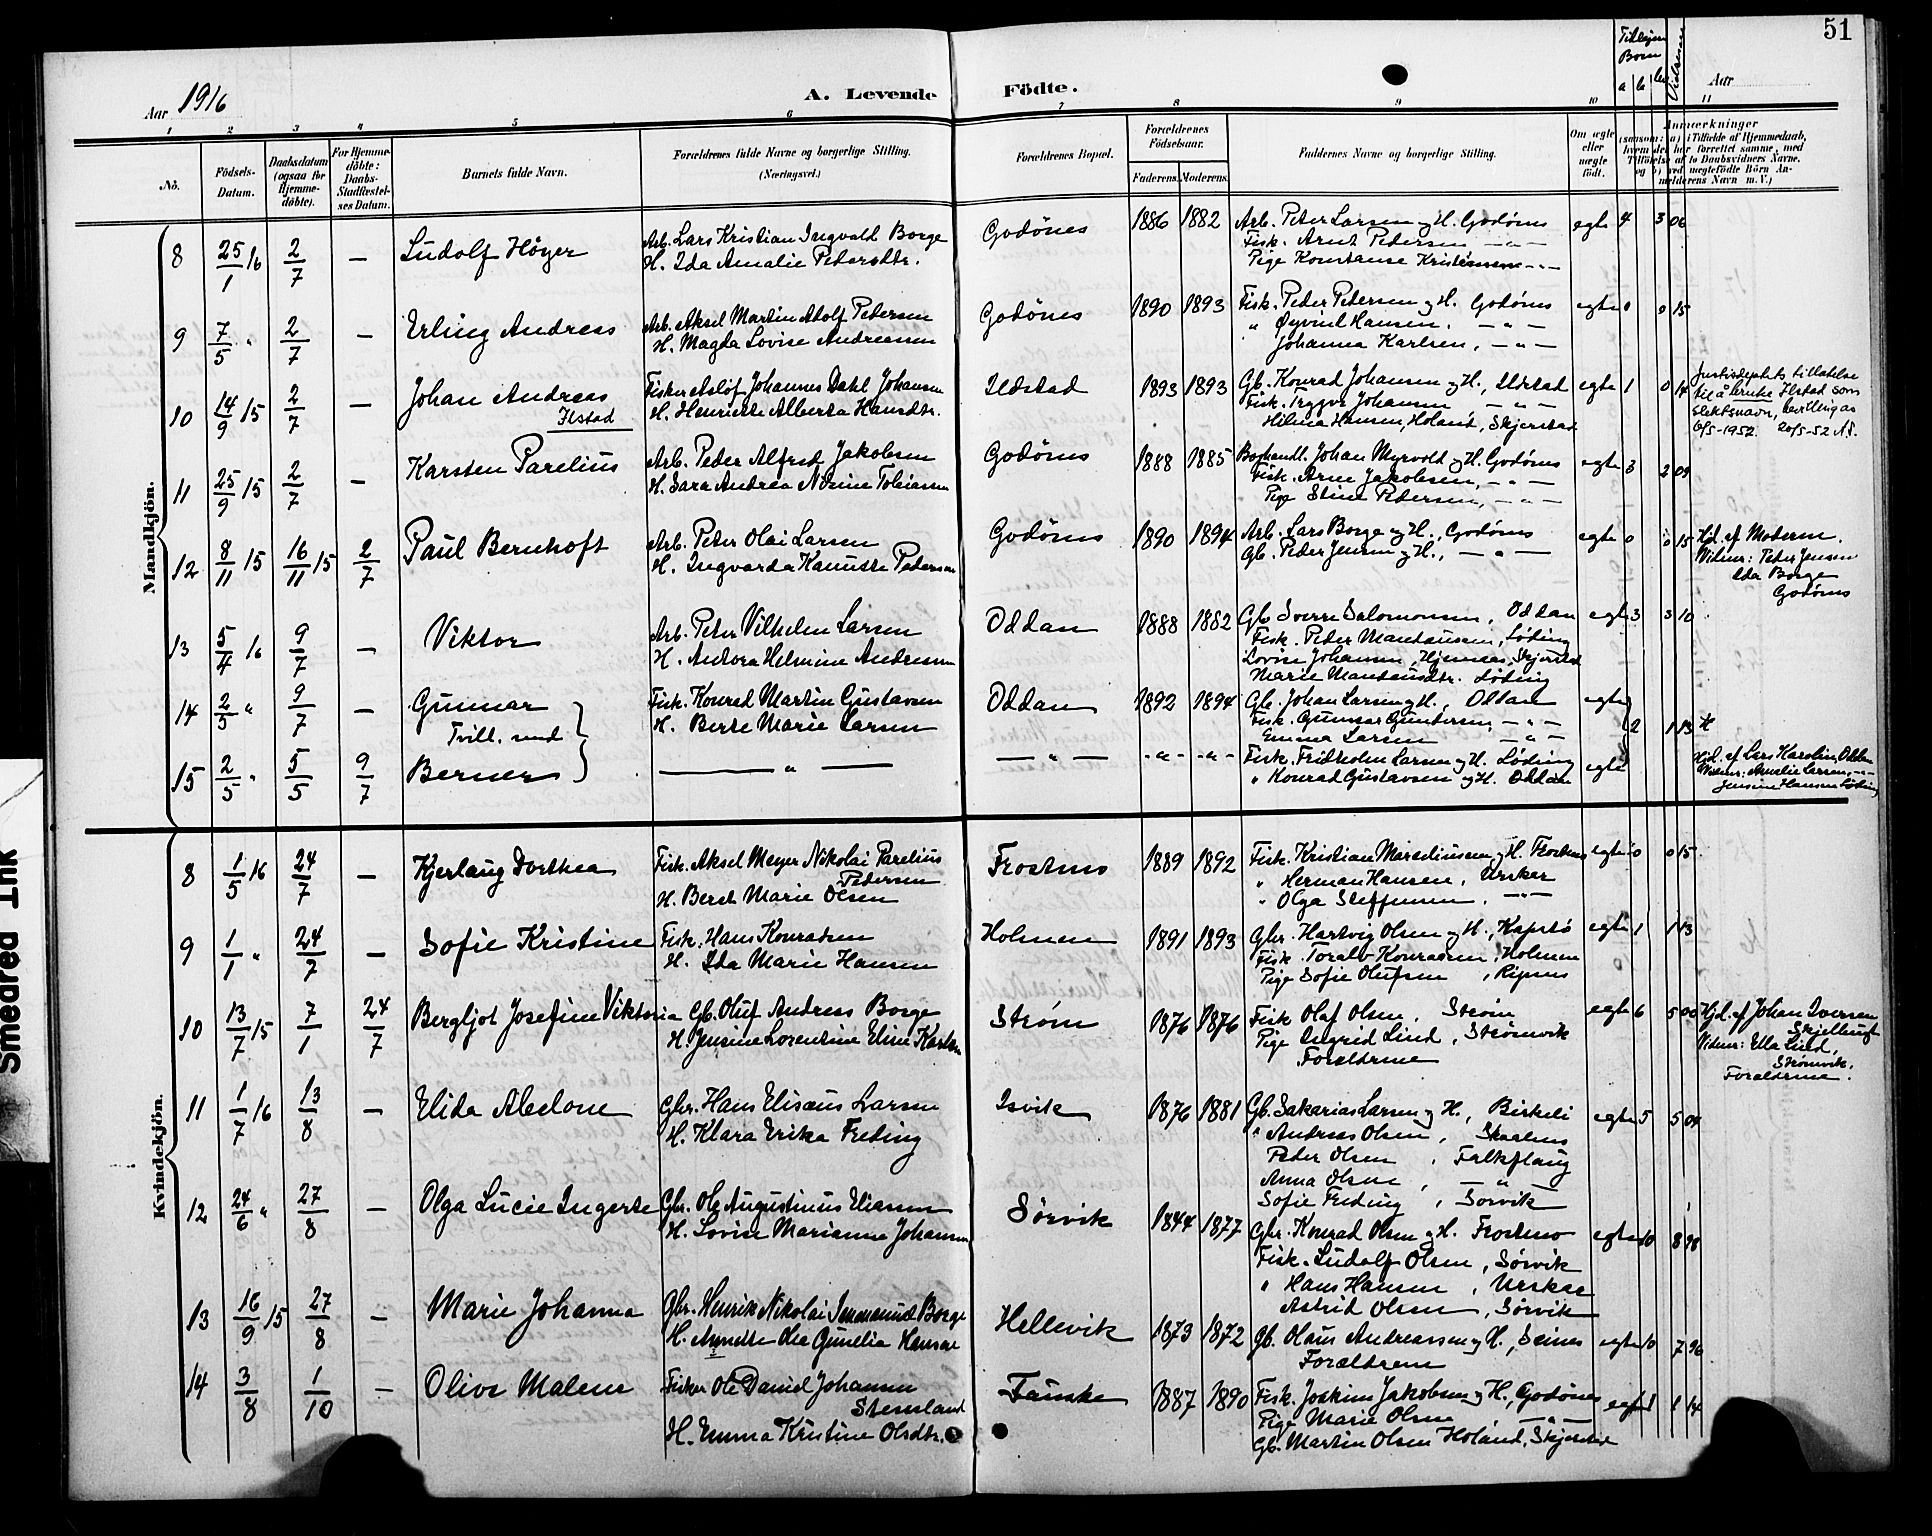 51
Aar 1916
A. Levende Födte.
Tidligere Born
a b c
Vielsesaar
Aar
1 2 3 4 5 6 7 8 9 10 11
Nö.
Födsels-Datum.
Daabsdatum (ogsaa for Hjemme-döbte).
For Hjemme-döbte: Daabs-Stadfæstel-ses Datum.
Barnets fulde Navn.
Forældrenes fulde Navne og borgerlige Stilling. (Næringsvei.)
Forældrenes Bopæl.
Forældrenes Födselsaar.
Faderens. Moderens.
Faddernes Navne og borgerlige Stilling.
Om ægte eller uægte födt.
Anmærkninger
(saasom: a) i Tilfælde af Hjemmedaab, hvem der har forrettet samme, med Tilföielse af to Daabsvidners Navne, og b) ved uægtefödte Börn An-melderens Navn m. V.)
Mandkjön.
8 25/1 16 2/7 — Ludolf Höyer
Arb. Lars Kristian Ingvald Borge
H. Ida Amalie Petersdtr.
Godönes 1886 1882
Arb. Peter Larsen og H. Godönes
Fisk. Arnt Pedersen — " —
Pige Konstanse Kristensen — " —
egte 4 3 06
9 7/5 " 2/7 — Erling Andreas
Arb. Aksel Martin Adolf Pedersen
H. Magda Lovise Andreassen
Godönes 1890 1893
Fisk. Peder Pedersen og H. Godönes
" Øyvind Hansen, — " —
Johanna Karlsen, — " —
egte 0 0 15
10 14/9 15 2/7 — Johan Andreas
Ilstad
Fisker Asløf Johannes Dahl Johansen
H. Henriette Alberta Hansdtr.
Ildstad 1893 1893
Gb. Konrad Johansen og H., Ildstad
Fisk. Trygve Johansen — " —
Hilma Hansen, Holand, Skjerstad
egte 1 0 14
Justisdeptets tillatelse
til å bruke Ilstad som
slektsnavn, bevilling av
6/5-1952. 20/5-52 A.S.
11 25/9 15 2/7 — Karsten Parelius
Arb. Peder Alfred Jakobsen
H. Sara Andrea Nosine Tobiassen
Godönes 1888 1885
Boghandl. Johan Myrvold og H. Godönes
Fisk. Arne Jakobsen, — " —
Pige Stine Pedersen, — " —
egte 3 2 09
12 8/11 15 16/11 15 2/7 Paul Bernhoft
Arb. Peter Olai Larsen
H. Ingvarda Hanutte Pedersen
Godönes 1890 1894
Arb. Lars Borge og H., Godönes
Gb. Peder Jensen og H., — " —
egte 0 0 15
Hjd. af Moderen.
Vidner: Peder Jensen
Ida Borge
Godönes
13 5/4 16 9/7 — Viktor
Arb. Peter Vilhelm Larsen
H. Antora Helmine Andreassen
Oddan 1888 1882
Gb. Sverre Salomonsen, Oddan
Fisk. Peder Mentausen, Løding
Lovise Johansen, Hjemaas, Skjerstad
Marie Mentausdtr. Løding
egte 3 3 10
14 2/5 " 9/7 — Gunnar
Tvill. med
Fisk. Konrad Martin Gustavsen
H. Berte Marie Larsen
Oddan 1892 1894
Gb. Johan Larsen og H., Oddan
Fisk. Gunnar Gundersen — " —
Emma Larsen — " —
egte 2 1 13 *
15 2/5 " 5/5 9/7 Berner
— " —
— " — - " - - " -
Fisk. Fridtholm Larsen og H. Løding
" Konrad Gustavsen og H. Oddan
egte
Hjd. af Lars Karolin Oddan
Vidner: Amalie Larsen, — " —
Jensine Hansen Løding
Kvindekjön.
8 1/5 16 24/7 — Kjerlaug Dorthea
Fisk. Aksel Meyer Nikolai Parelius
Pedersen
H. Beret Marie Olsen
Frostmo 1889 1892
Fisk. Kristian Mareliussen og H. Frostmo
" Herman Hansen, Urskar
" Olga Steffensen, — " —
egte 0 0 15
9 1/1 " 24/7 — Sofie Kristine
Fisk. Hans Konradsen
H. Ida Marie Hansen
Holmen 1891 1893
Gbr. Hartvig Olsen og H., Kapstø
Fisk. Toralv Konradsen, Holmen
Pige Sofie Olufsen, Ripnes
egte 1 1 13
10 13/7 15 7/1 24/7 Bergljot Josefine Viktoria
Gb. Oluf Andreas Borge
H. Jensine Lorentine Eline Karlsen
Strøm 1876 1876
Fisk Olaf Olsen, Strøm
Pige Ingrid Lind, Strømvik
Forældrene
egte 6 5 00
Hjd. af Johan Iversen
Skjellbugt
Vidner: Ella Lind,
Strømvik.
Forældrene.
11 1/7 16 13/8 — Elida Abelone
Gbr. Hans Elisæus Larsen
H. Klara Erika Freding
Isvik 1876 1881
Gb. Sakarias Larsen og H., Birkeli
" Andreas Olsen, Skaalnes
Peder Olsen, Falkflaug
Anna Olsen, — " —
Sofie Freding, Sørvik
egte 5 5 04
12 24/6 " 27/8 — Olga Lucie Ingerte
Gbr. Ole Augustinus Eliassen
H. Lovise Marianne Johansen
Sørvik 1844 1877
Gbr. Konrad Olsen og H. Frostmo
Fisk. Ludolf Olsen, Sørvik
" Hans Hansen, Urskar
Astrid Olsen, Sørvik
egte 10 8 98
13 16/9 15 27/8 — Marie Johanna
Gbr. Henrik Nikolai Immanuel Borge
H. Annette Olea Gunelia Hansen
Hellevik 1873 1872
Gb. Olaus Andreassen og H., Seines
Forældrene
egte 10 7 96
14 3/8 1/10 — Olive Malene
Fisker Ole Daniel Johansen
Stemland
H. Emma Kristine Olsdtr.
Fauske 1887 1890
Fisk. Joakim Jakobsen og H., Godönes
Pige Marie Olsen — " —
Gb. Martin Olsen Holand, Skjerstad
egte 1 1 14
Smeared Ink